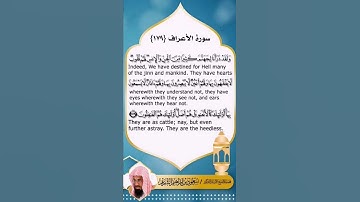 سورة الأعراف {١٧٩}
وَلَقَدْ ذَرَأْنَا لِجَهَنَّمَ كَثِيرًا مِّنَ الْجِنِّ وَالْإِنسِ لَهُمْ قُلُوبٌ
Indeed, We have destined for Hell many
of the jinn and mankind. They have hearts
لَّا يَفْقَهُونَ بِهَا وَلَهُمْ أَعْيُنٌ لَّا يُبْصِرُونَ بِهَا وَلَهُمْ آذَانٌ لَّا يَسْمَعُونَ
wherewith they understand not, they have
eyes wherewith they see not, and ears
wherewith they hear not.
بِهَا أُولَٰئِكَ كَالْأَنْعَامِ بَلْ هُمْ أَضَلُّ أُولَٰئِكَ هُمُ الْغَافِلُونَ
They are as cattle; nay, but even
further astray. They are the heedless.